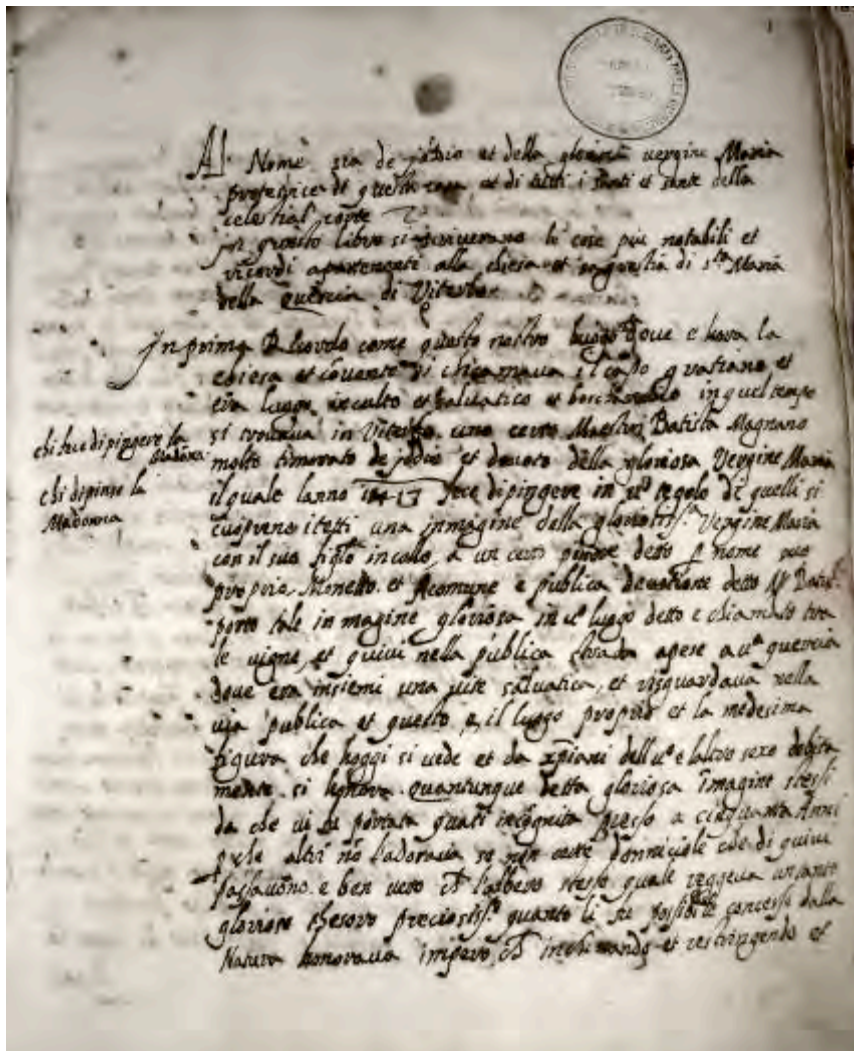 Al Nome sia de jddio et della gloriosa vergine Maria
protetrice di questa casa et di tutti i santi et sante della
celestial corte
In questo libro si scriverano le cose piu notabili et
ricordi apartenenti alla chiesa et di s.ta Maria
della Quercia di Viterbo
In prima Ricordo come questo nostro luogo dove e hora la
chiesa et covento si chiamava il capo gratiano et
era luogo inculto et salvatico et in quel tempo
si trovava in Viterbo uno certo Maestro Batista Magnano
molto timorato de jddio et devoto della gloriosa Vergine Maria
chi fece dipingere la
Madonna
il quale lanno 1417 fece dipingere in u.o tegolo di quelli si
chi dipinse la
Madonna
cuoprono i tetti una inmagine della gloriosiss.a Vergine Maria
con il suo figlo in collo, a un certo detto p nome
proprio Monetto. et comune e publica devotione detto
porto tale inmagine gloriosa in u.o luogo detto e chiamato tra
le vigne, et quivi nella publica strada apese a u.a quercia
dove era insiemi una vite salvatica, et risguardava nella
via publica et questo e il luogo proprio et la medesima
figura che hoggi si vede et da xpiani dell u.o e laltro sexo debita
mente si honora. quantunque detta gloriosa imagine stessi
da che vi fu portata quasi incognita presso a cinquanta Anni
altri no l'adorava se non certe donniciole che di quivi
passavono. e ben vero l'albero stesso quale reggeva
glorioso thesoro preciosiss.o quanto li fu possibile concessi dalla
Natura honorava inchinando et restringendo et